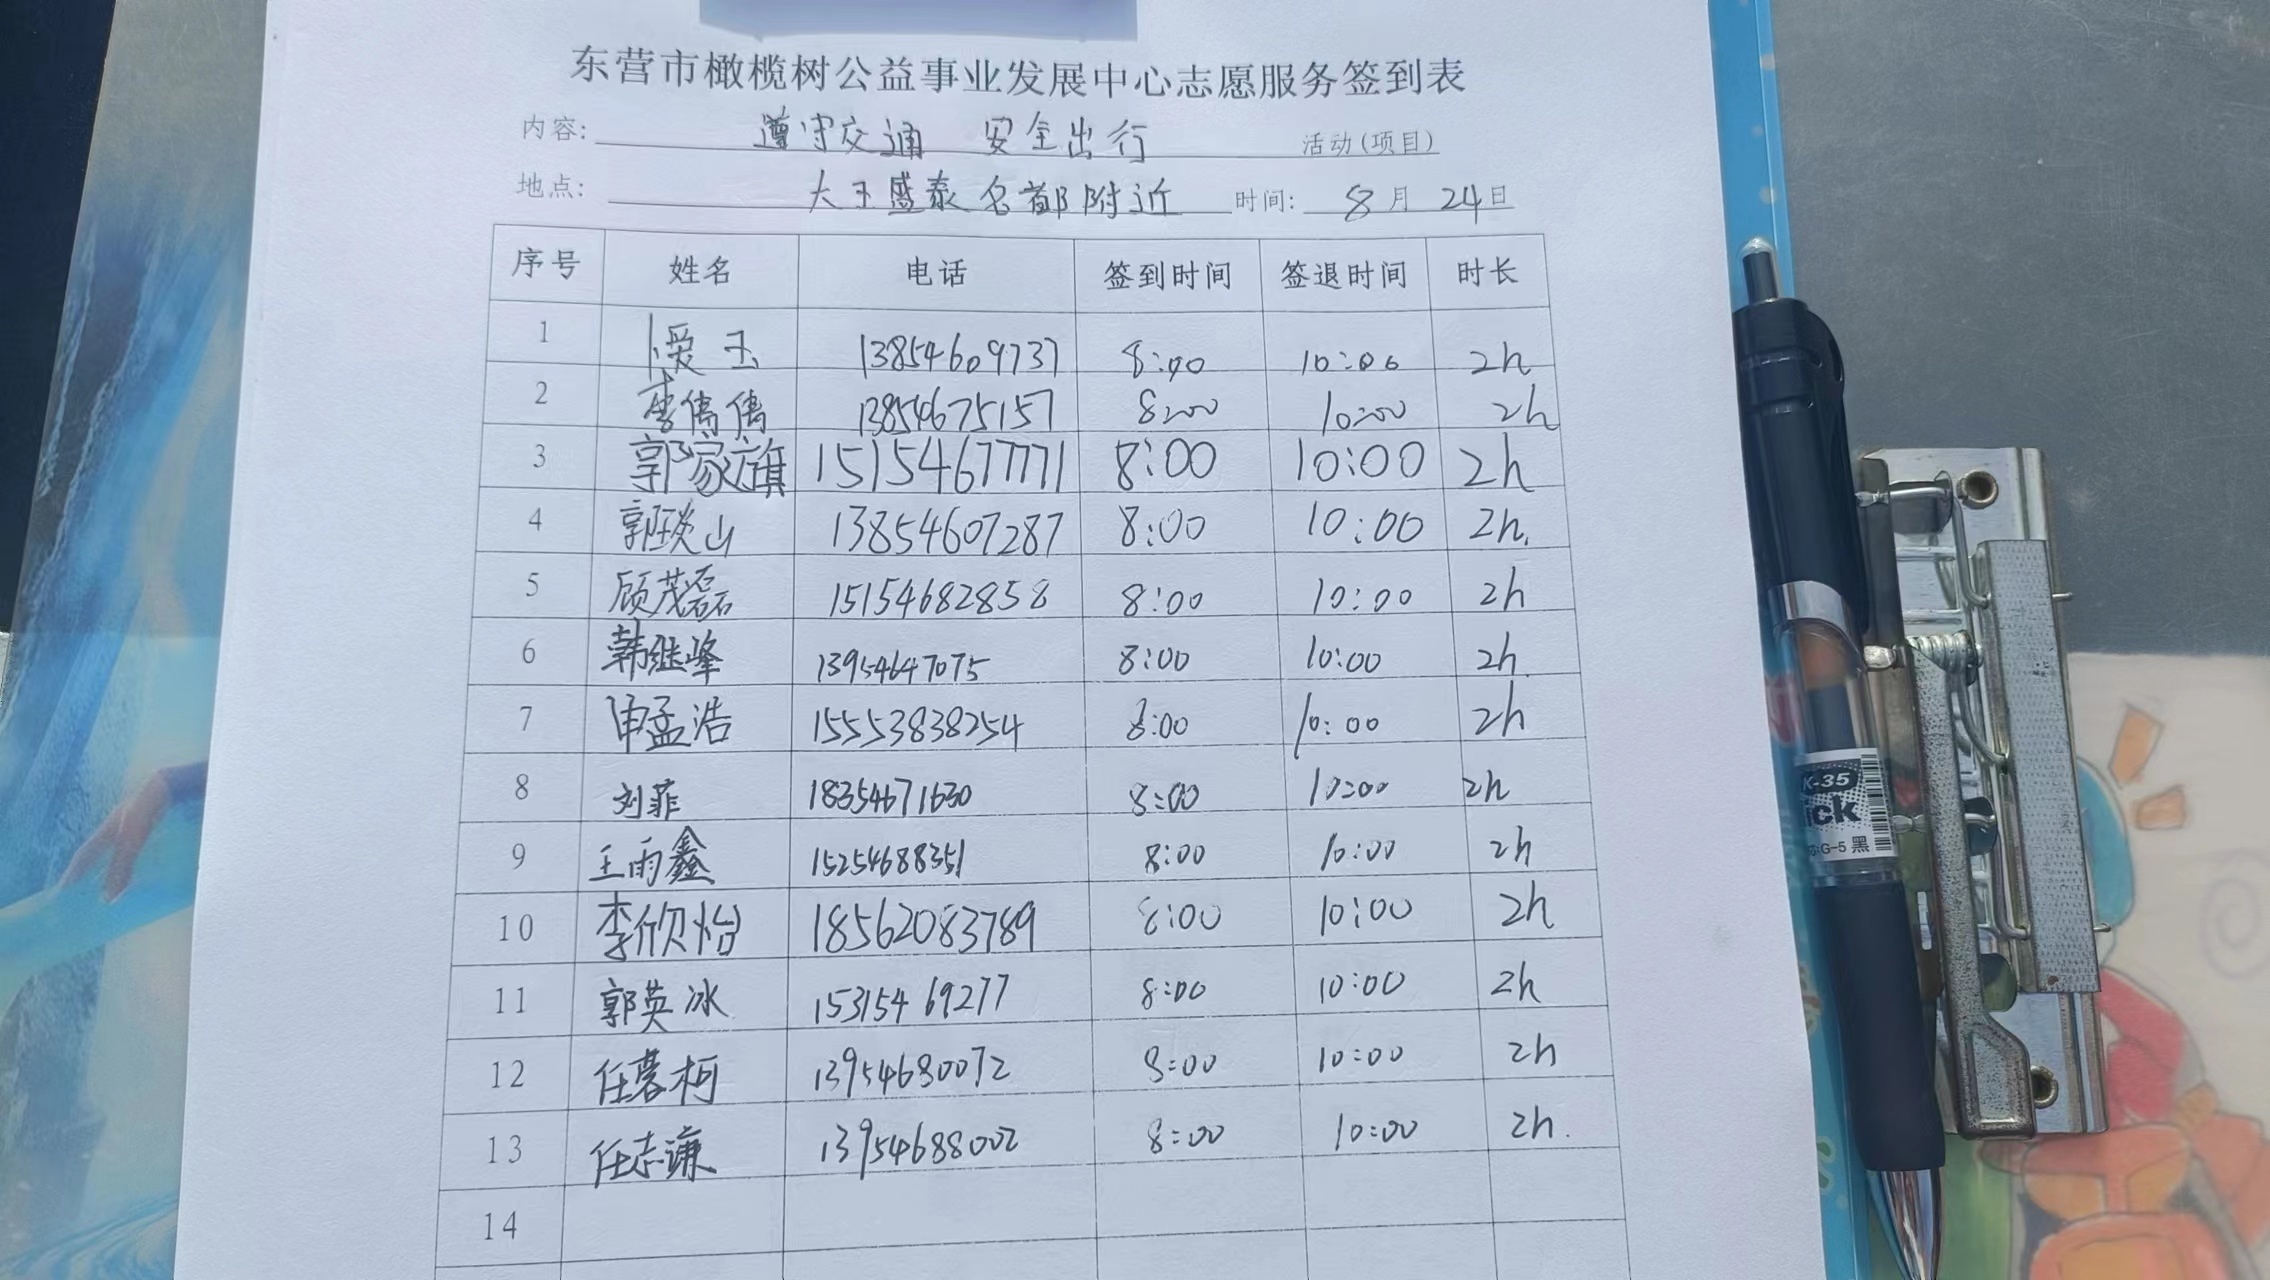 东营市橄榄树公益事业发展中心志愿服务签到表
内容: 遵守交通 安全出行 活动(项目)
地点: 大王盛泰名都附近 时间: 8月24日
序号 姓名 电话 签到时间 签退时间 时长
1 卜爱玉 13854609737 8:00 10:00 2h
2 李倩倩 13854675157 8:00 10:00 2h
3 郭家旗 15154677771 8:00 10:00 2h
4 郭琰山 13854607287 8:00 10:00 2h.
5 顾茂磊 15154682858 8:00 10:00 2h
6 韩继峰 13954647075 8:00 10:00 2h
7 申孟浩 15553838254 8:00 10:00 2h
8 刘菲 18354671630 8:00 10:00 2h
9 王雨鑫 15254688351 8:00 10:00 2h
10 李欣怡 18562083789 8:00 10:00 2h
11 郭英冰 15315469277 8:00 10:00 2h
12 任慕柯 13954680072 8:00 10:00 2h
13 任志谦 13954688002 8:00 10:00 2h.
14
K-35
ick
G-5 黑